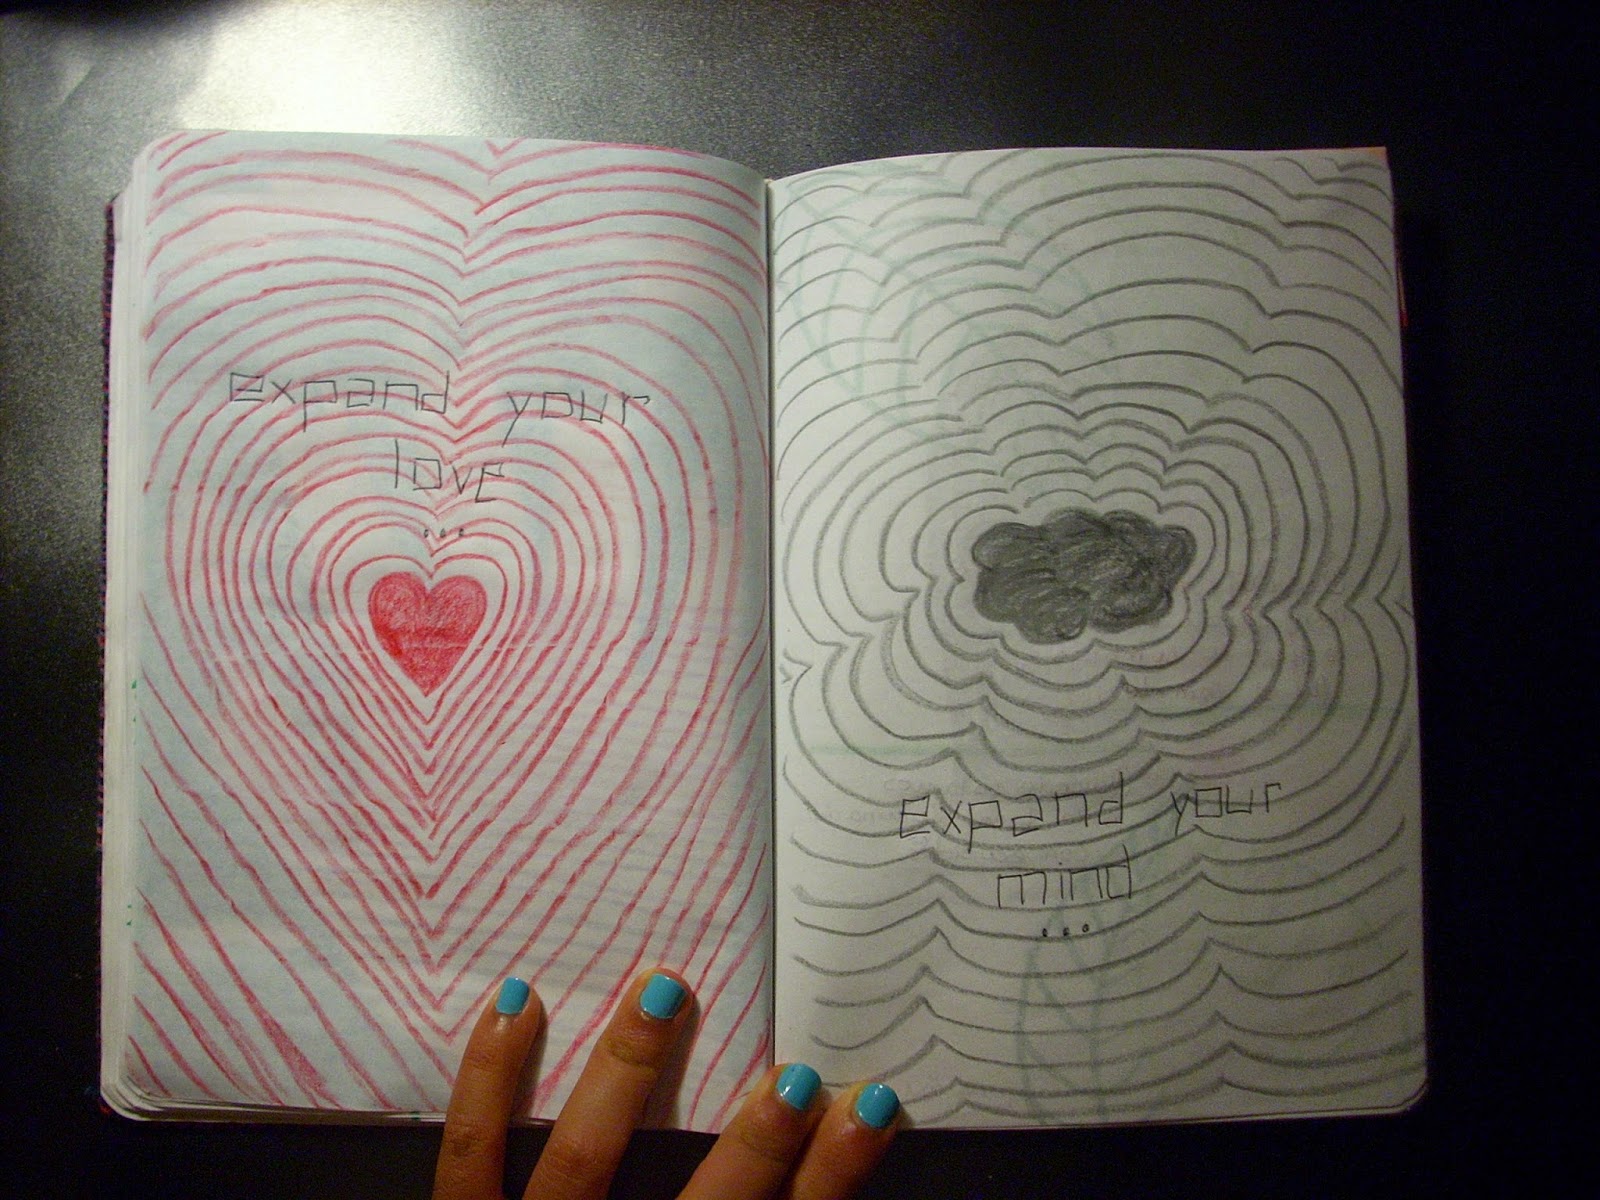 expand your
love
...
expand your
mind
...